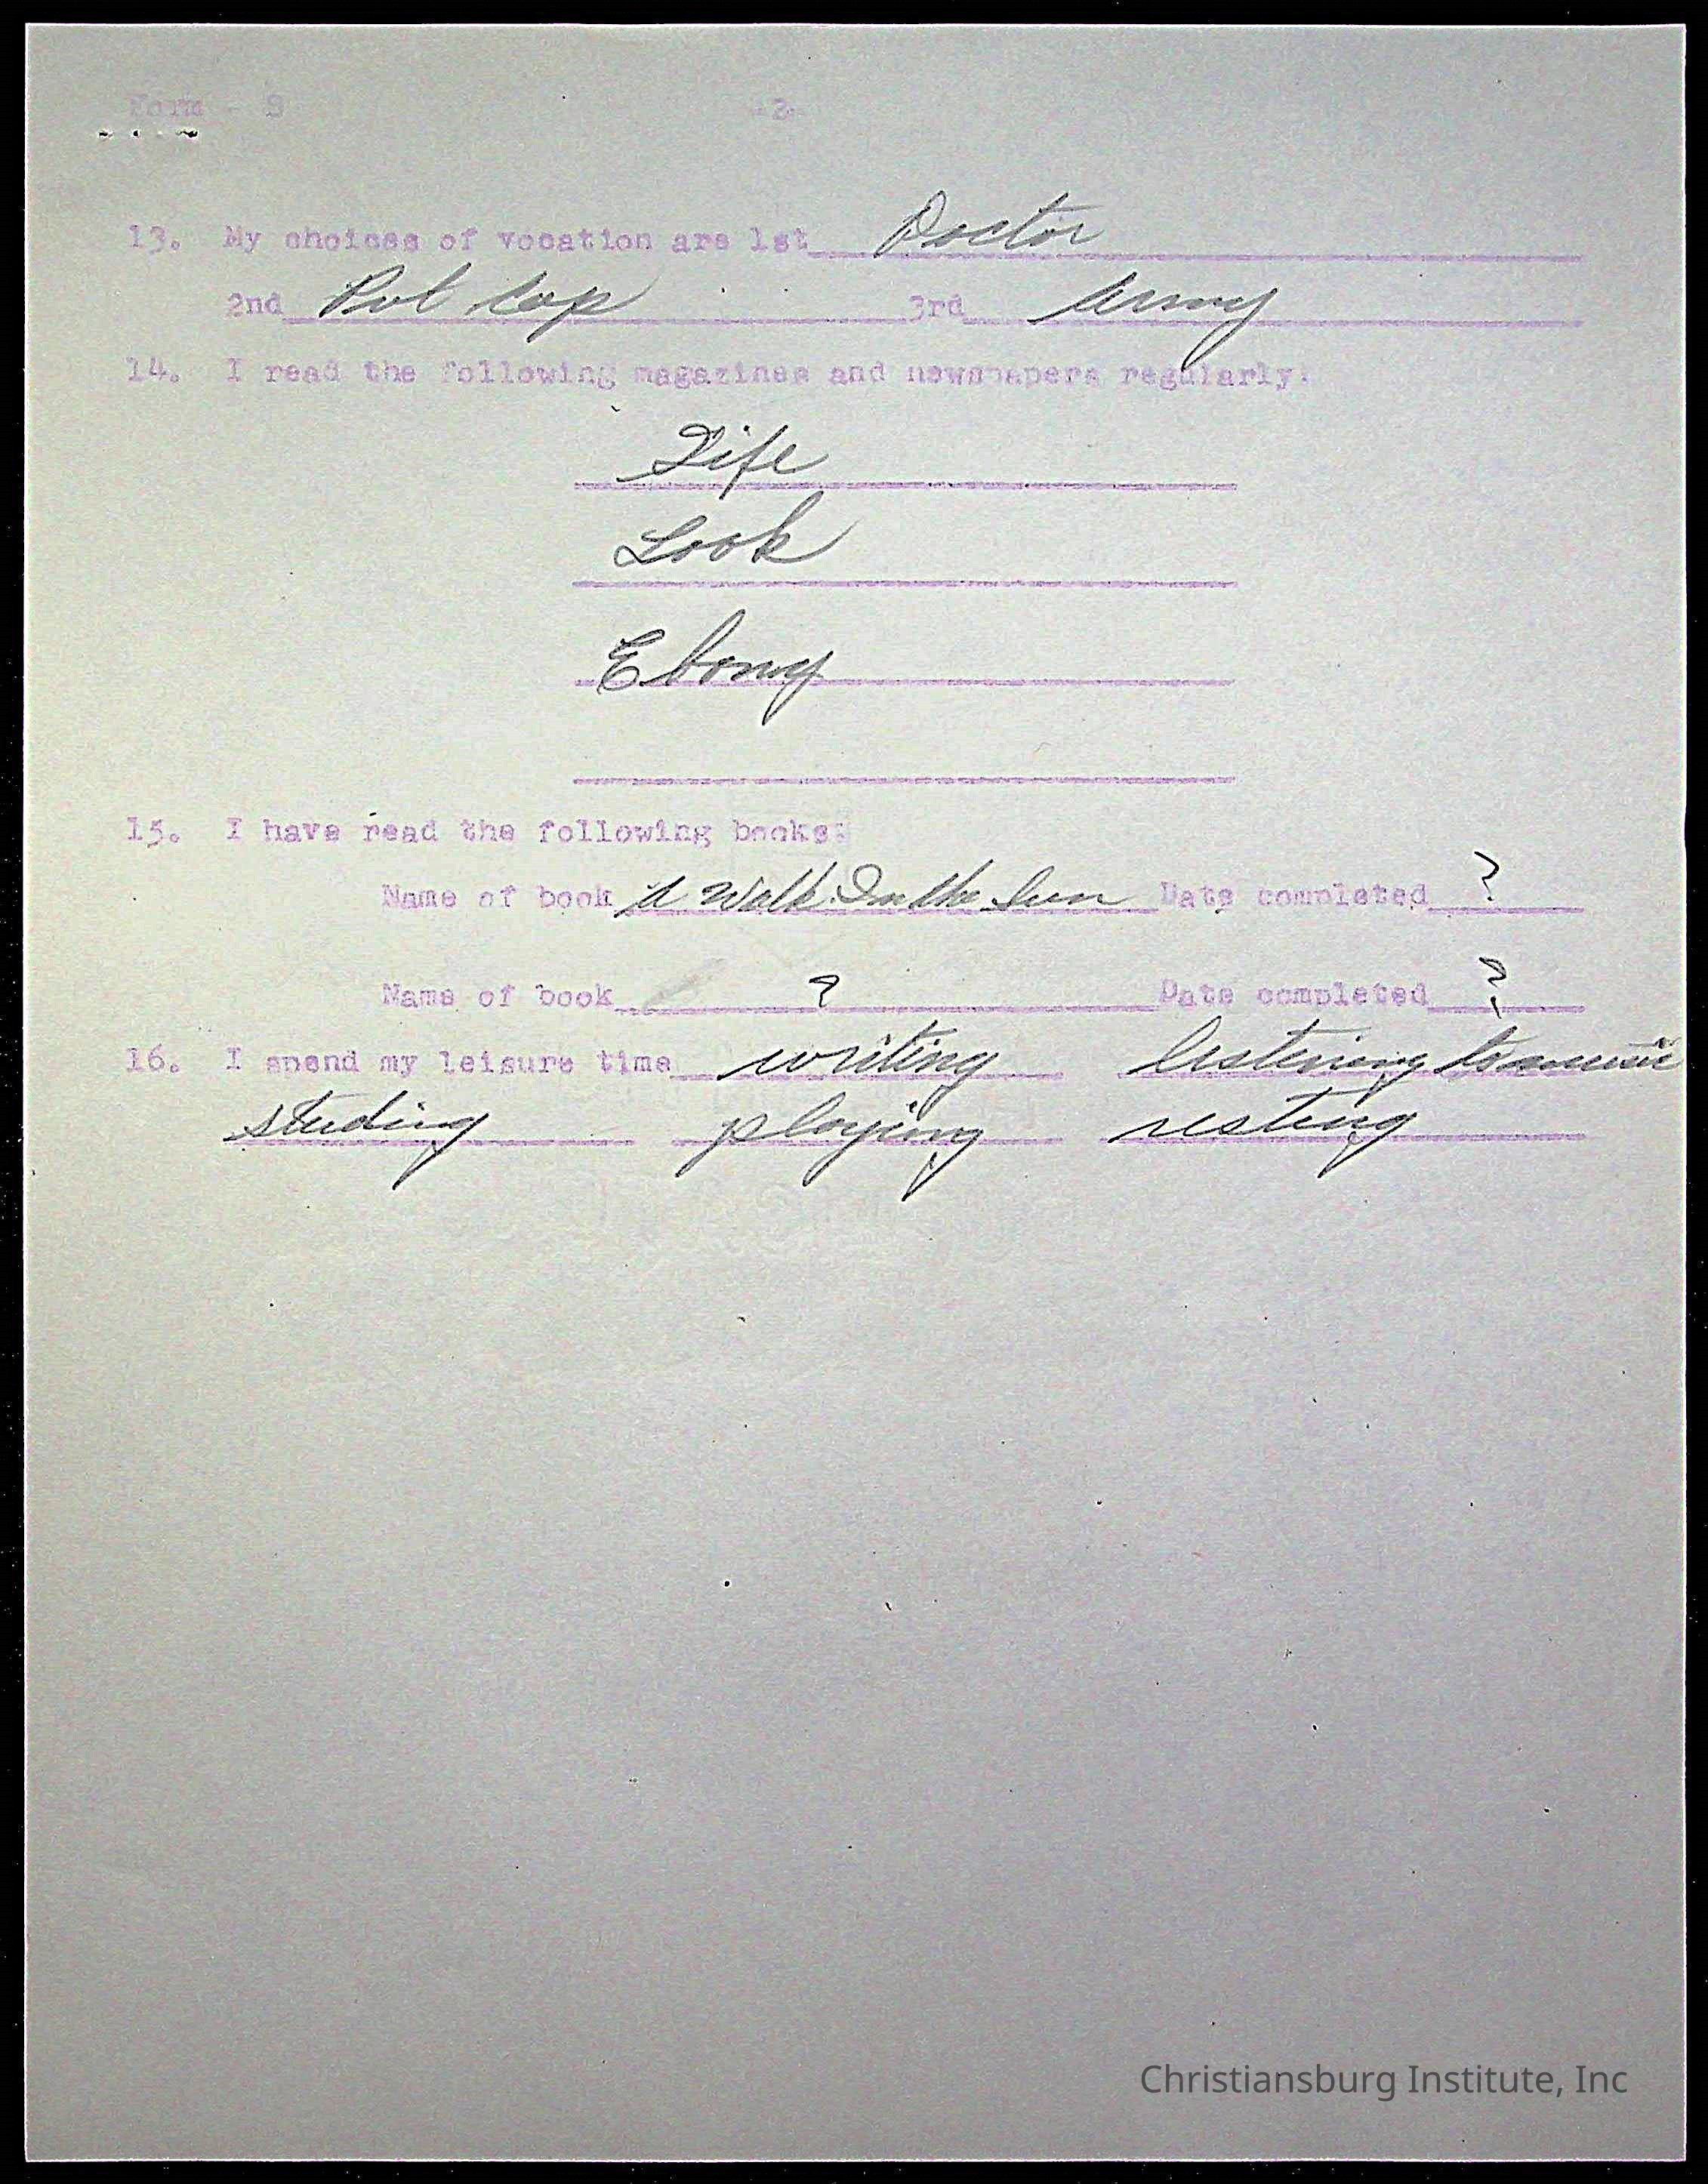 Form - S -2-
13. My choices of vocation are 1st Doctor
2nd 3rd Army
14. I read the following magazines and newspapers regularly:
Life
Look
Ebony
15. I have read the following books:
Name of book A Walk In the Sun Date completed ?
Name of book ? Date completed ?
16. I spend my leisure time writing listening to music
studing playing resting
Christiansburg Institute, Inc